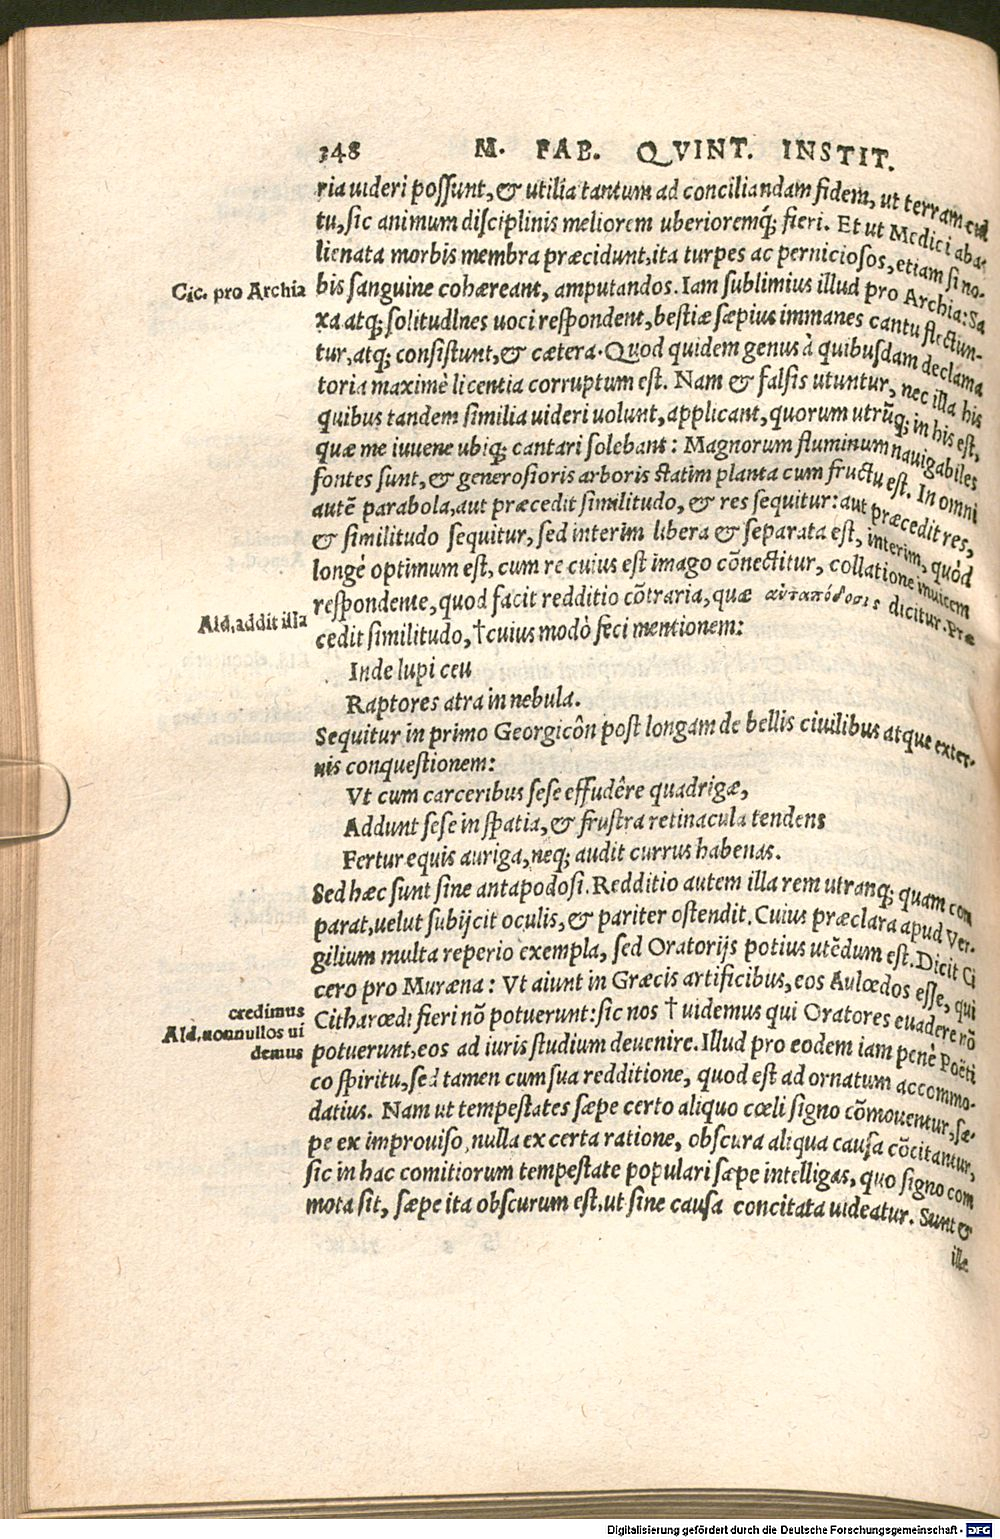 348 M. FAB. QVINT. INSTIT.
ria uideri possunt, & utilia tantum ad conciliandam fidem, ut terram cul
tu, sic animum disciplinis meliorem uberioremq; fieri. Et ut Medici aba-
lienata morbis membra præcidunt, ita turpes ac perniciosos, etiam si no-
Cic. pro Archia
bis sanguine cohæreant, amputandos. Iam sublimius illud pro Archia: Sa
xa atq; solitudines uoci respondent, bestiæ sæpius immanes cantu flectun-
tur, atq; consistunt, & cætera. Quod quidem genus à quibusdam declama
toria maximè licentia corruptum est. Nam & falsis utuntur, nec illa his
quibus tandem similia uideri uolunt, applicant, quorum utrũq; in his est,
quæ me iuuene ubiq; cantari solebant: Magnorum fluminum nauigabiles
fontes sunt, & generosioris arboris statim planta cum fructu est. In omni
autẽ parabola, aut præcedit similitudo, & res sequitur: aut præcedit res,
& similitudo sequitur, sed interim libera & separata est, interim, quòd
longè optimum est, cum re cuius est imago cõnectitur, collatione inuicem
respondente, quod facit redditio cõtraria, quæ ἀνταπόδοσις dicitur. Præ
Ald. addit illa
cedit similitudo, †cuius modò feci mentionem:
Inde lupi ceu
Raptores atra in nebula.
Sequitur in primo Georgicôn post longam de bellis ciuilibus atque exter-
nis conquestionem:
Vt cum carceribus sese effudêre quadrigæ,
Addunt sese in spatia, & frustra retinacula tendens
Fertur equis auriga, neq; audit currus habenas.
Sed hæc sunt sine antapodosi. Redditio autem illa rem utranq; quam com
parat, uelut subijcit oculis, & pariter ostendit. Cuius præclara apud Ver-
gilium multa reperio exempla, sed Oratorijs potius utẽdum est. Dicit Ci
cero pro Muræna: Vt aiunt in Græcis artificibus, eos Aulœdos esse, qui
credimus
Ald. nonnullos ui
demus
Citharœdi fieri nõ potuerunt: sic nos † uidemus qui Oratores euadere nõ
potuerunt, eos ad iuris studium deuenire. Illud pro eodem iam penè Poëti
co spiritu, sed tamen cum sua redditione, quod est ad ornatum accommo-
datius. Nam ut tempestates sæpe certo aliquo cœli signo cõmouentur, sæ-
pe ex improuiso, nulla ex certa ratione, obscura aliqua causa cõcitantur,
sic in hac comitiorum tempestate populari sæpe intelligas, quo signo com
mota sit, sæpe ita obscurum est, ut sine causa concitata uideatur. Sunt &
illæ
Digitalisierung gefördert durch die Deutsche Forschungsgemeinschaft - DFG